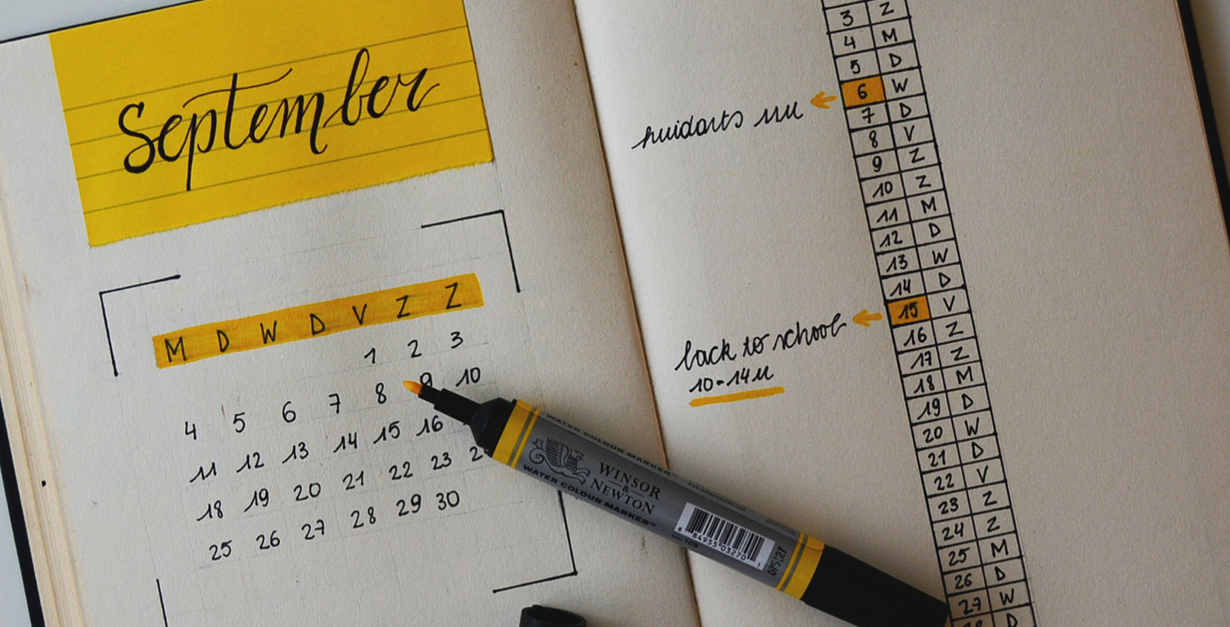 September
M D W D V Z Z
1 2 3
4 5 6 7 8 9 10
11 12 13 14 15 16
18 19 20 21 22 23
25 26 27 28 29 30
3 Z
4 M
5 D
6 W
huidarts
7 D
8 V
9 Z
10 Z
11 M
12 D
13 W
14 D
15 V
back to school
10-14u
16 Z
17 Z
18 M
19 D
20 W
21 D
22 V
23 Z
24 Z
25 M
26 D
27 W
28 D
WATER COLOUR MARKER
WINSOR
&
NEWTON
WATER COLOUR MARKER™